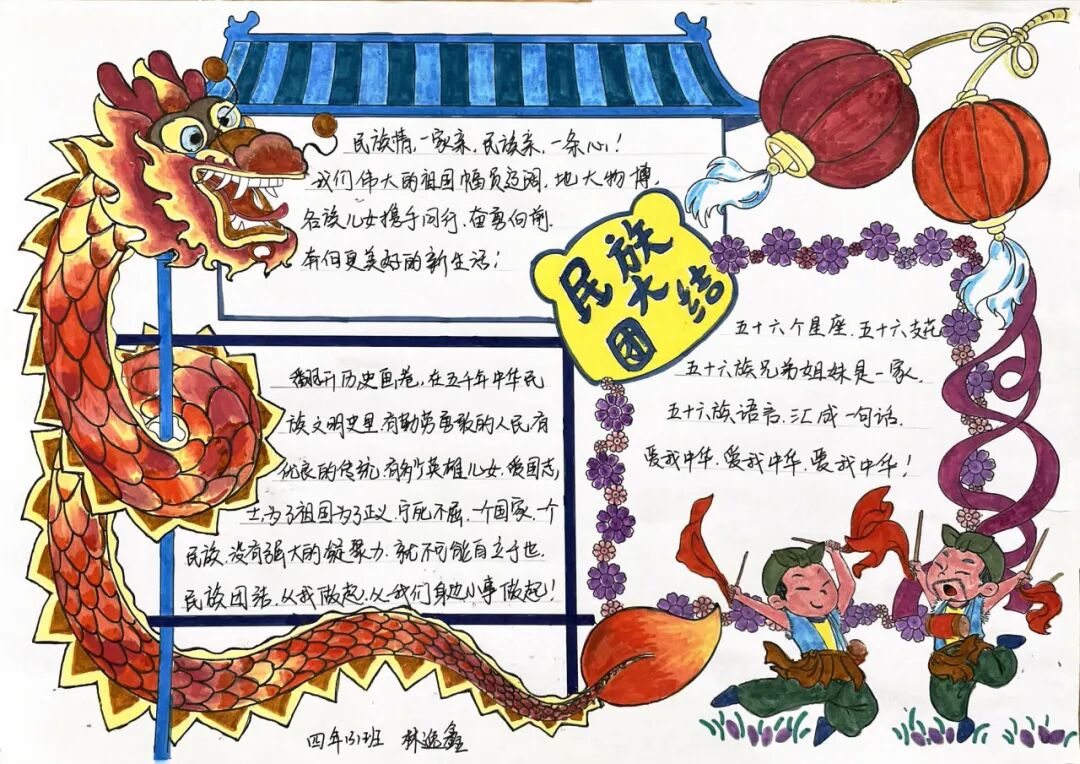 民族情,一家亲,民族亲,一条心!
我们伟大的祖国幅员辽阔,地大物博,
各族儿女携手同行、奋勇向前.
奔向更美好的新生活!
民族大团结
翻开历史画卷,在五千年中华民
族文明史里,有勤劳勇敢的人民,有
优良的传统,有多少英雄儿女,爱国志
士,为了祖国为了正义,宁死不屈,一个国家,一个
民族,没有强大的凝聚力,就不可能自立于世.
民族团结,从我做起,从我们身边小事做起!
五十六个星座,五十六支花
五十六族兄弟姐妹是一家.
五十六族语言,汇成一句话.
爱我中华,爱我中华,爱我中华!
四年(3)班 林逸鑫